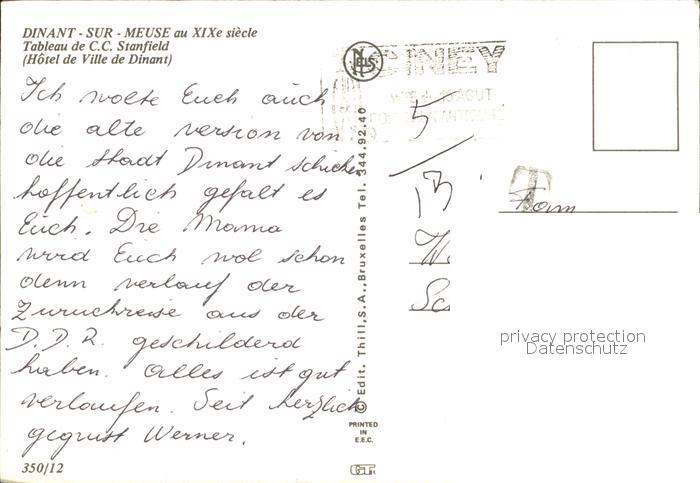 DINANT - SUR - MEUSE au XIXe siècle
Tableau de C.C. Stanfield
(Hôtel de Ville de Dinant)
Ich wolte Euch auch
die alte version von
die Stadt Dinant schicken
hoffentlich gefalt es
Euch. Die Mama
wird Euch wol schon
denn verlauf der
Zuruchreise aus der
D.D.R. geschilderd
haben. Alles ist gut
verlaufen. Seit herzlich
gegrust Werner.
350/12
© Edit. Thill, S.A., Bruxelles Tel. 344.92.40
PRINTED
IN
E.E.C.
GT
NELS
CINEY
AOUT
5
13
T
Fam
W.
Sc
privacy protection
Datenschutz